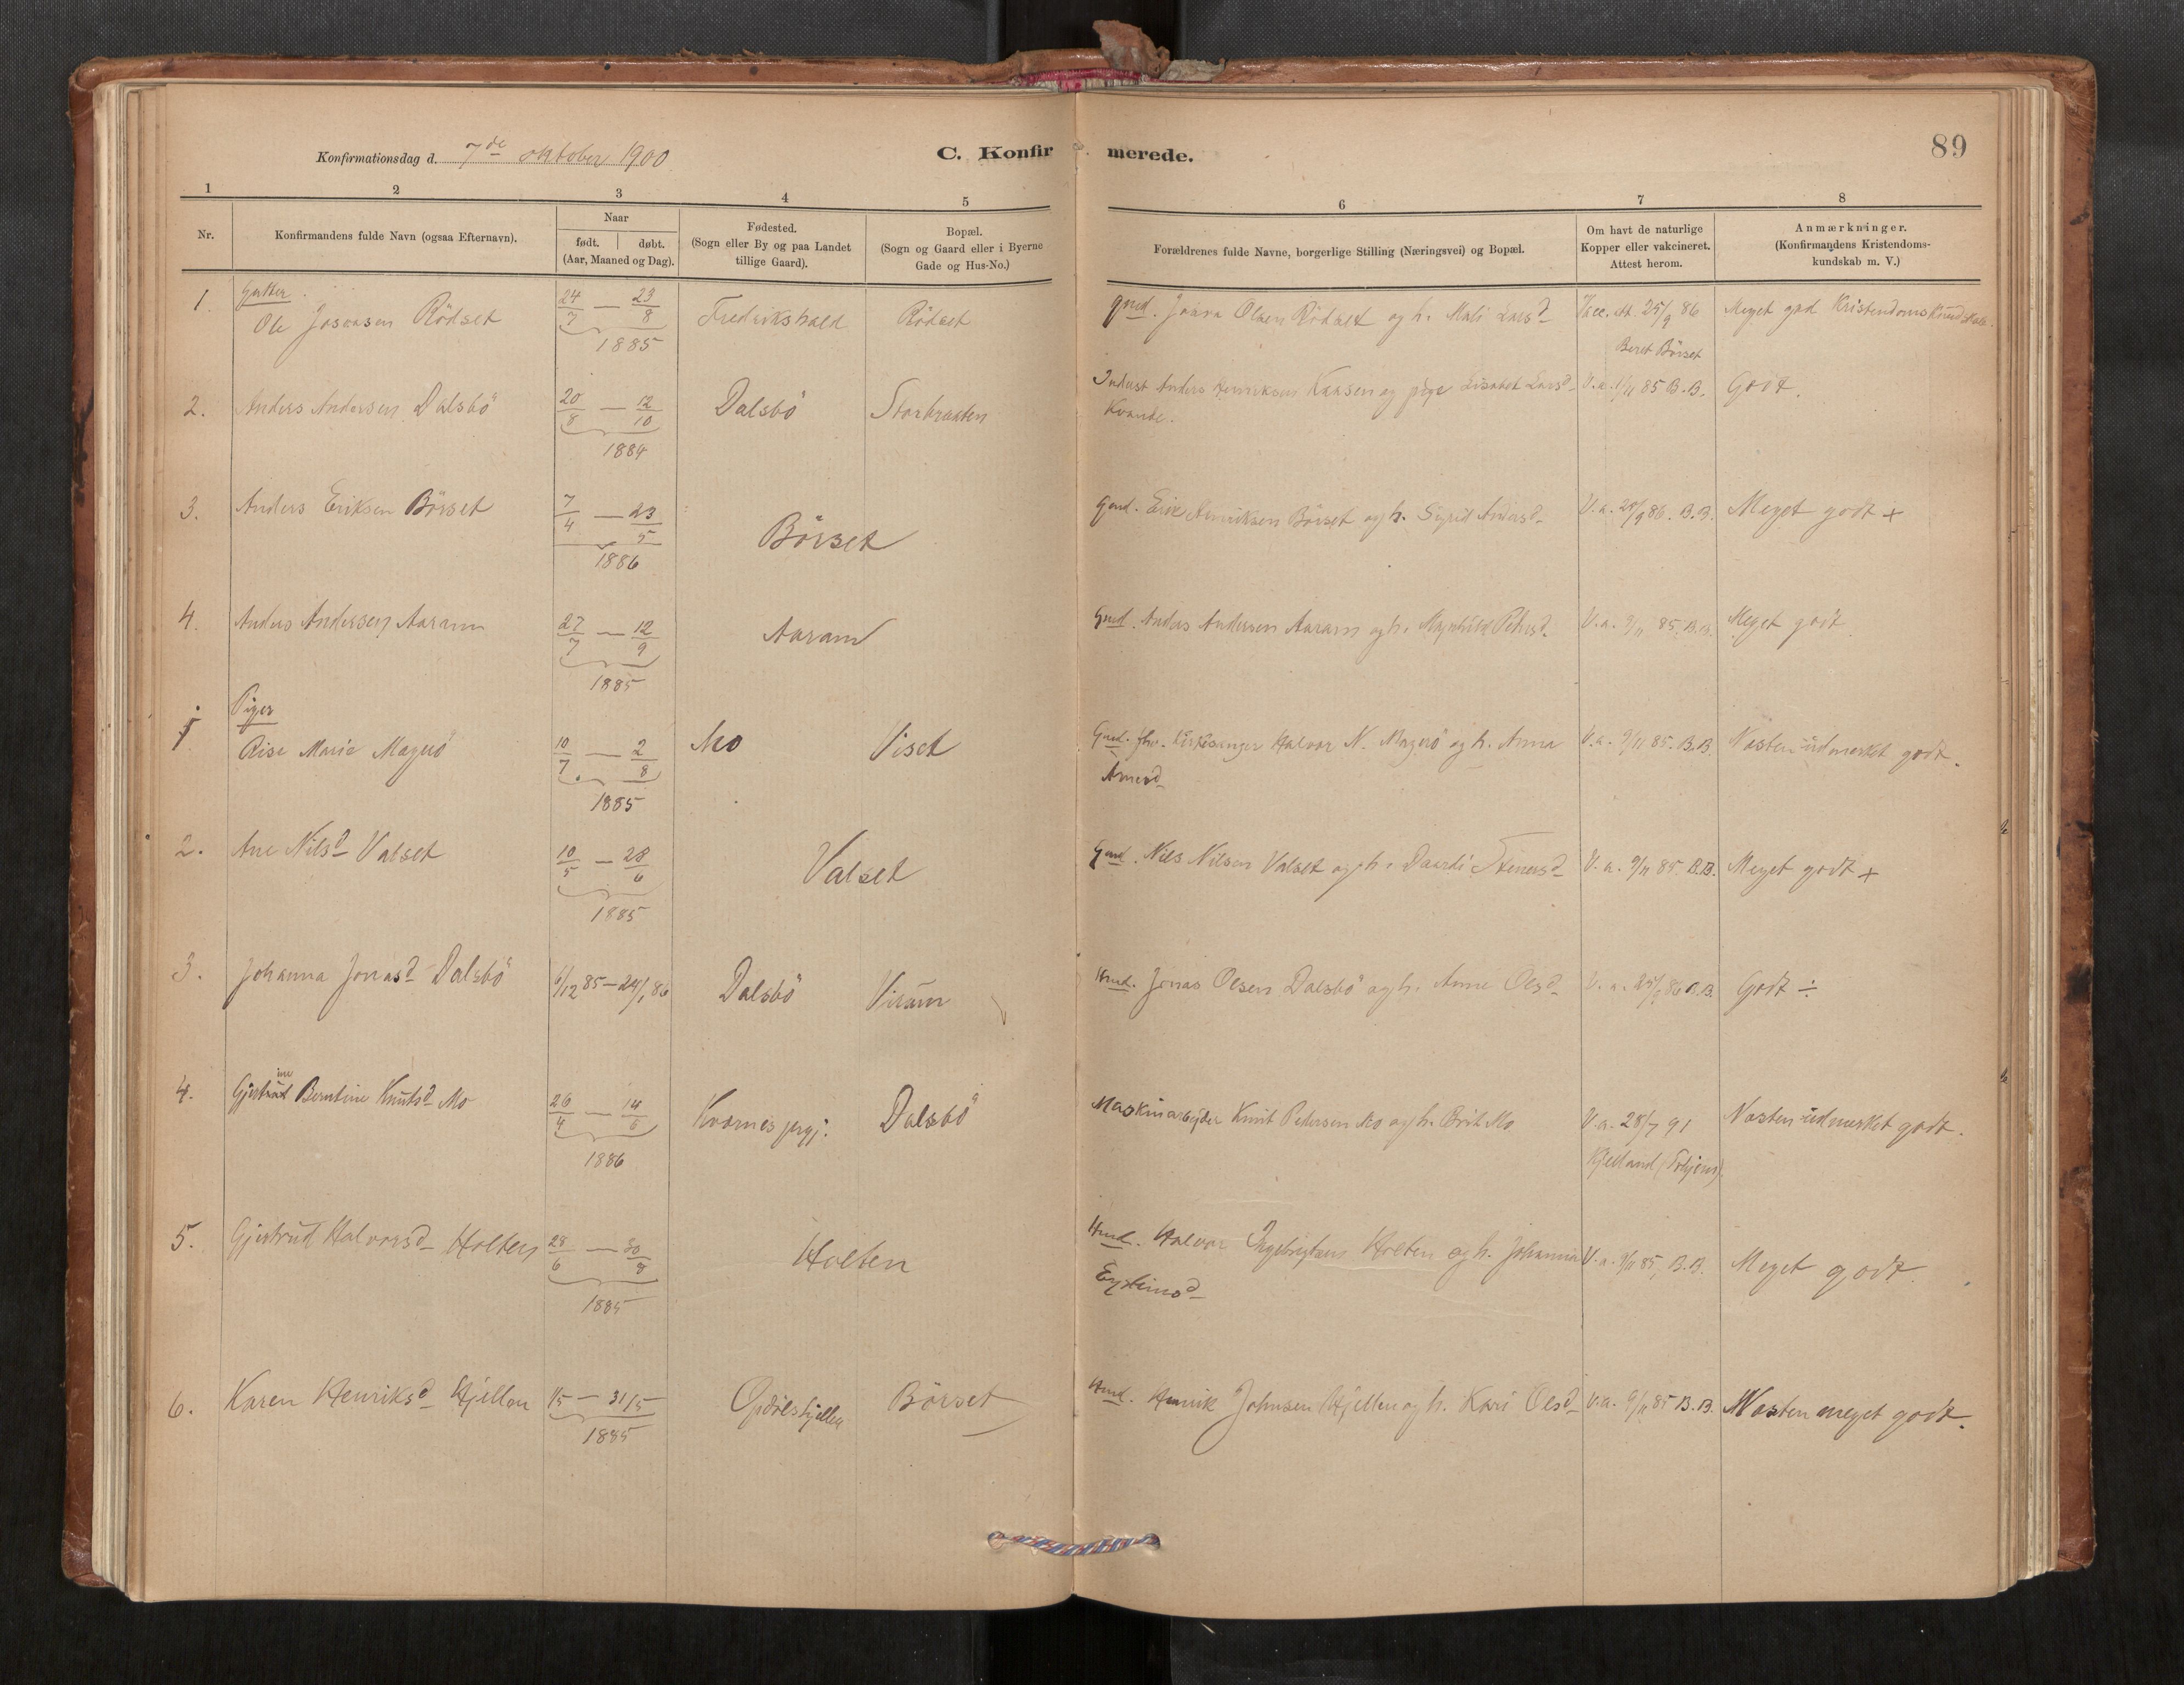 Konfirmationsdag d. 7de oktober 1900
C. Konfirmerede.
89
1 2 3 4 5 6 7 8
Nr.
Konfirmandens fulde Navn (ogsaa Efternavn).
Naar
født. | døbt.
(Aar, Maaned og Dag).
Fødested.
(Sogn eller By og paa Landet
tillige Gaard).
Bopæl.
(Sogn og Gaard eller i Byerne
Gade og Hus-No.)
Forældrenes fulde Navne, borgerlige Stilling (Næringsvei) og Bopæl.
Om havt de naturlige
Kopper eller vakcineret.
Attest herom.
Anmærkninger.
(Konfirmandens Kristendoms-
kundskab m. V.)
Gutter.
1. Ole Rödset 24/7 — 23/8 1885 Fredrikshald Rödset Gmd. Olsen Rödset og h. Mali Larsd. Vacc. att. 25/9 86
Beret Börset
Meget god Kristendomskundskab.
2. Anders Andersen Dalsbö 20/8 — 12/10 1884 Dalsbö Anders Henriksen Kaasen og pige Lisabet Larsd.
Kvande.
V. a. 9/11 85 B.B. Godt.
3. Anders Eriksen Börset 7/4 — 23/5 1886 Börset Gmd. Erik Henriksen Börset og h. Sigrid Andersd. V. a. 25/9 86. B.B. Meget godt +
4. Anders Andersen Aaram 27/7 — 12/9 1885 Aaram Gmd. Anders Andersen Aaram og h. Magnhild Petersd. V. a. 9/11 85. B.B. Meget godt.
Piger
1. Marie Magerö 10/7 — 2/8 1885 Mo Viset Gmd. fhv. Kirkesanger Halvor N. Magerö og h. Anna
Arnesd.
V. a. 9/11 85. B.B. Næsten udmerket godt.
2. Ane Nilsd. Valset 10/5 — 28/6 1885 Valset Gmd. Nils Nilsen Valset og h. Daardi Steinersd. V. a. 9/11 85. B.B. Meget godt +
3. Johanna Jonasd. Dalsbö 6/12 85 — 24/1 86 Dalsbö Hmd. Jonas Olsen Dalsbö og h. Anne Olsd. V. a. 25/9 86 B.B. Godt ÷
4. Gjertrine Berntine Knutsd. Mo 26/4 — 14/6 1886 Kvernes prgj. Dalsbö Maskinarbeider Knut Pedersen Mo og h. Brit Mo V. a. 28/7 91
Kjelland
Næsten udmerket godt.
5. Gjertrud Halvorsd. Holten 28/6 — 30/8 1885 Holten Hmd. Halvor Ingebrigtsen Holten og h. Johanna
Eysteinsd.
V. a. 9/11 85, B.B. Meget godt.
6. Karen Henriksd. Hjellen 1/5 — 31/5 1885 Opdölshjellen Börset Hmd. Henrik Johnsen Hjellen og h. Kari Olsd. V. a. 9/11 85 B.B. Næsten meget godt.